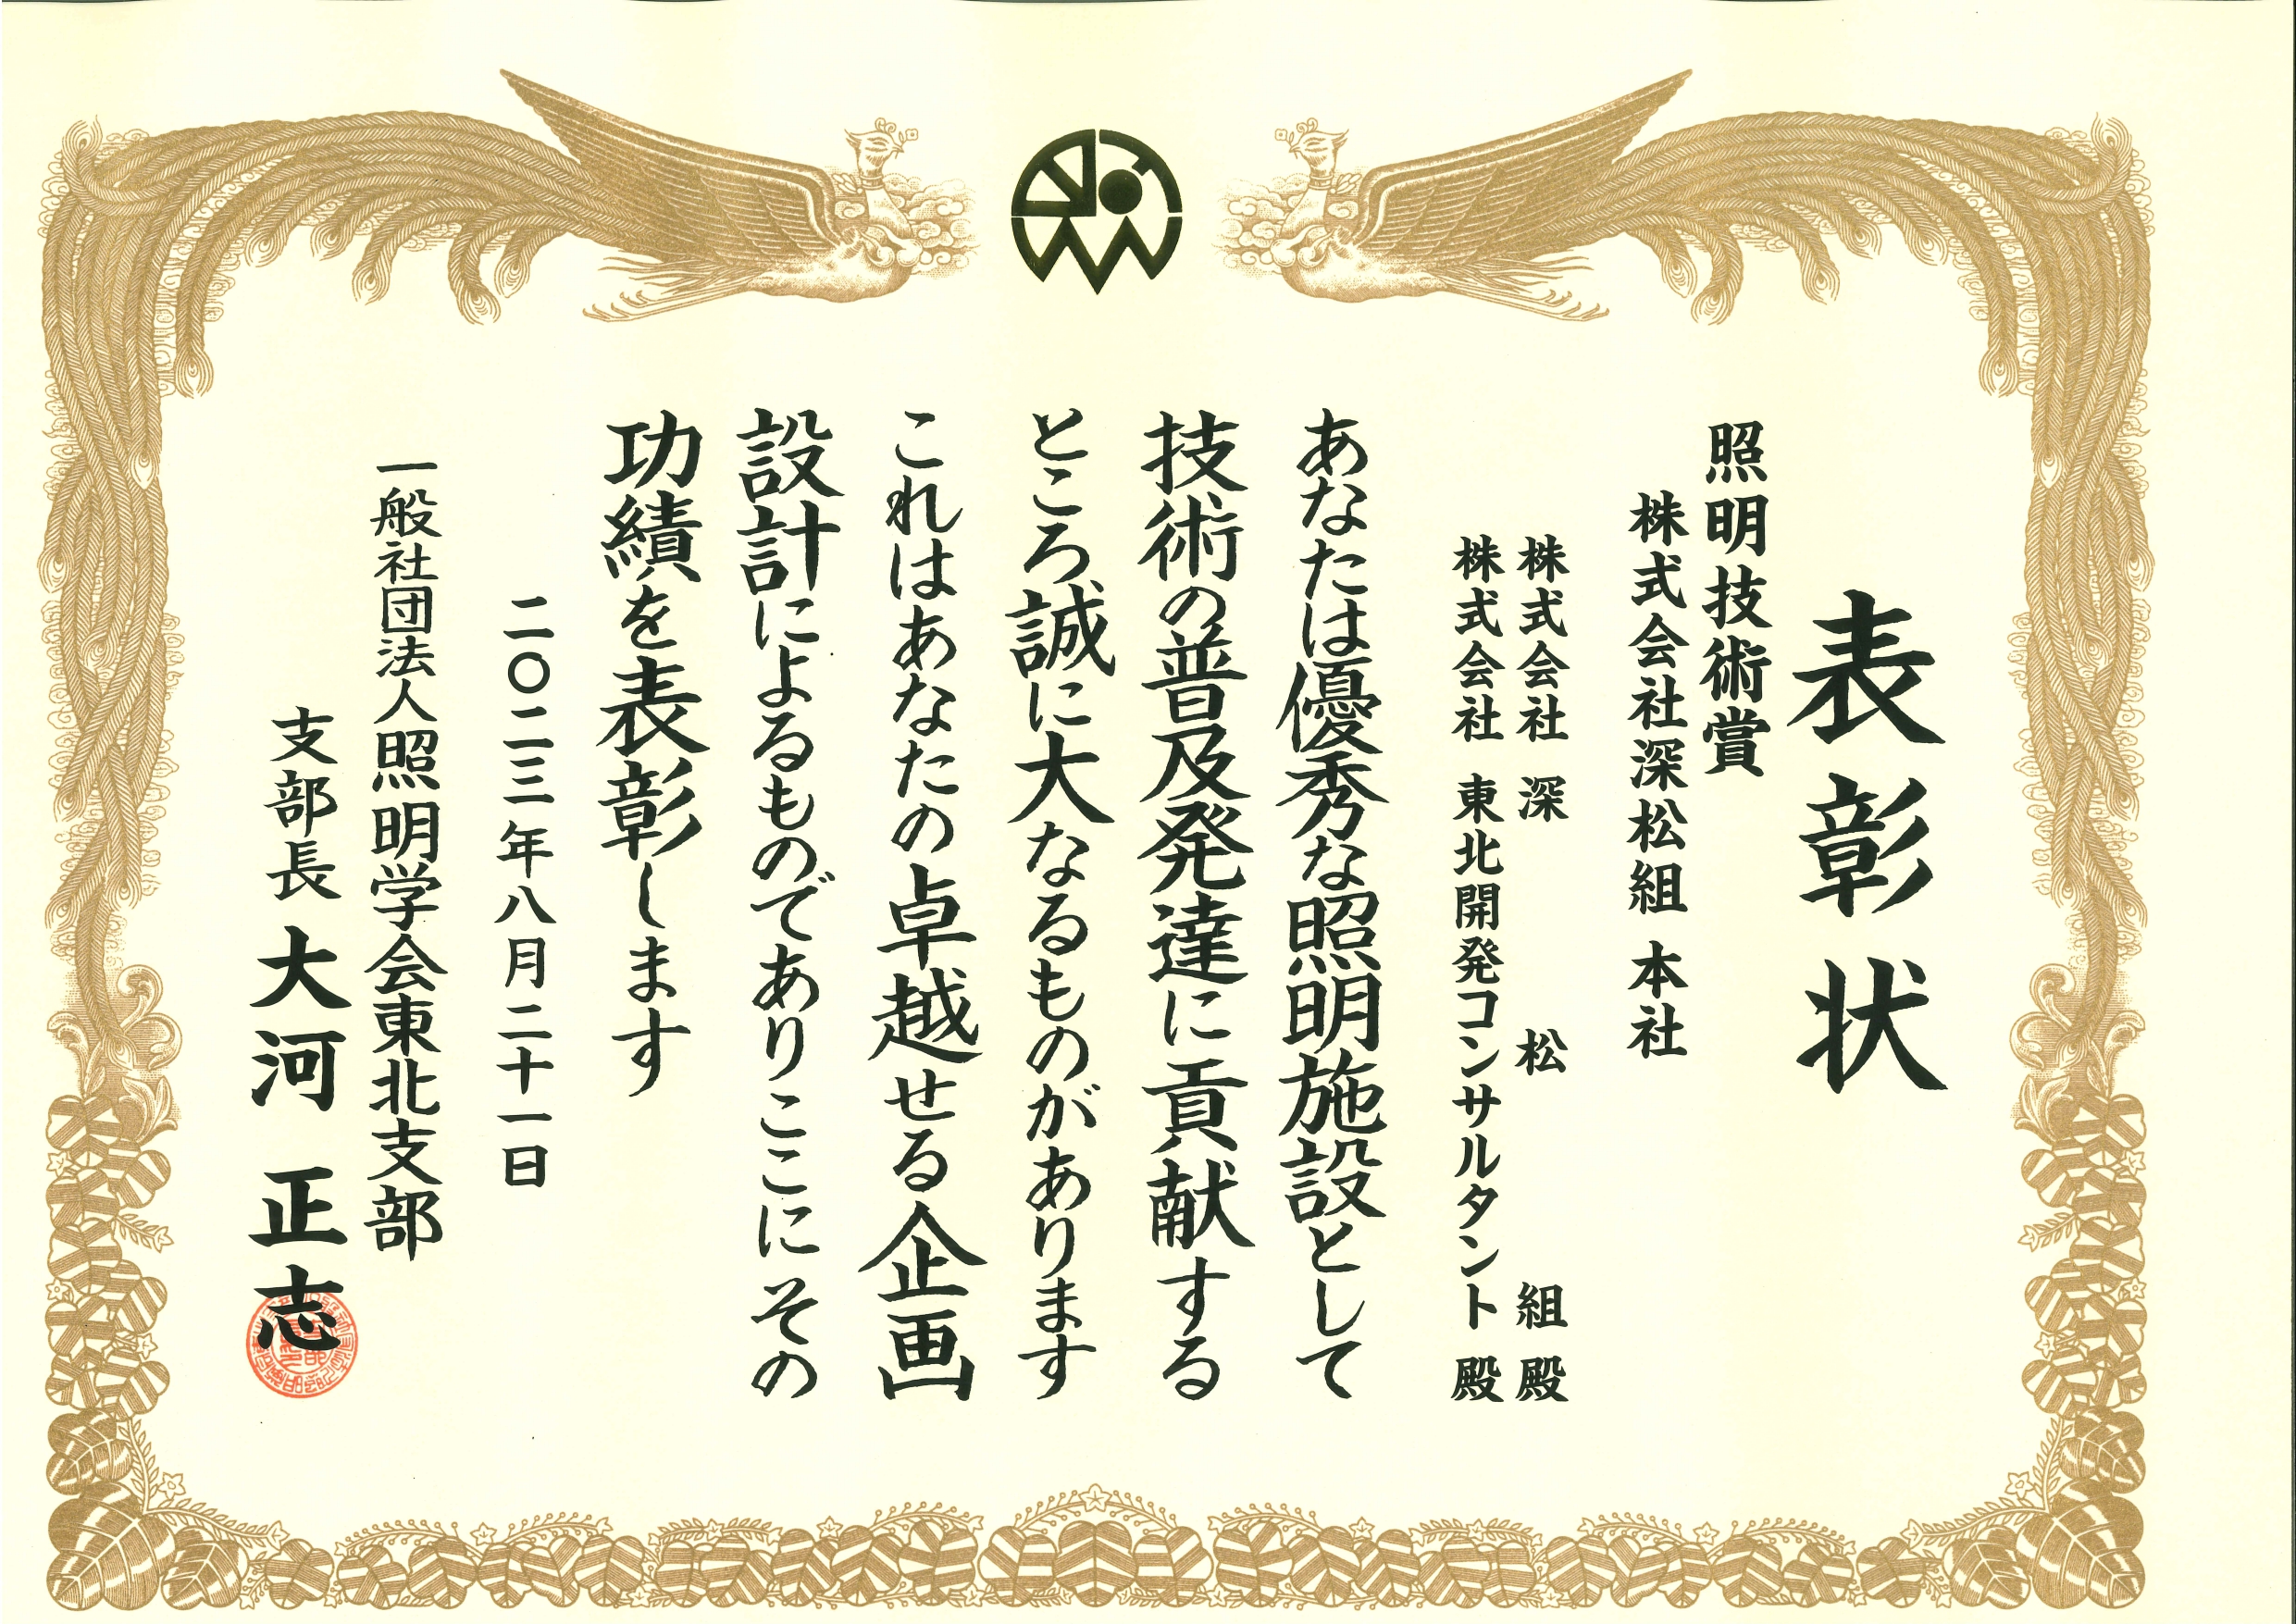 表彰状
照明技術賞
株式会社深松組 本社
株式会社 深松組 殿
株式会社 東北開発コンサルタント 殿
あなたは優秀な照明施設として
技術の普及発達に貢献する
ところ誠に大なるものがあります
これはあなたの卓越せる企画
設計によるものでありここにその
功績を表彰します
二〇二三年八月二十一日
一般社団法人照明学会東北支部
支部長 大河 正志